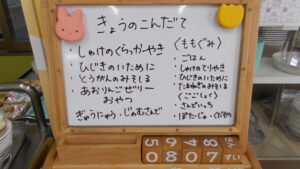 きょうのこんだて
・しゃけのくらっかやき
・ひじきのいために
・とうがんのみそしる
・あおりんごゼリー
おやつ
ぎゅうにゅう・じゃむさんど
〈ももぐみ〉
・ごはん
・しゃけのてりやき
・ひじきのいために
・たまねぎのみそしる
〈ごごしょく〉
・さんどいっち
・ぽたーじゅ・くだもの
5 9 4 8
0 8 0 7